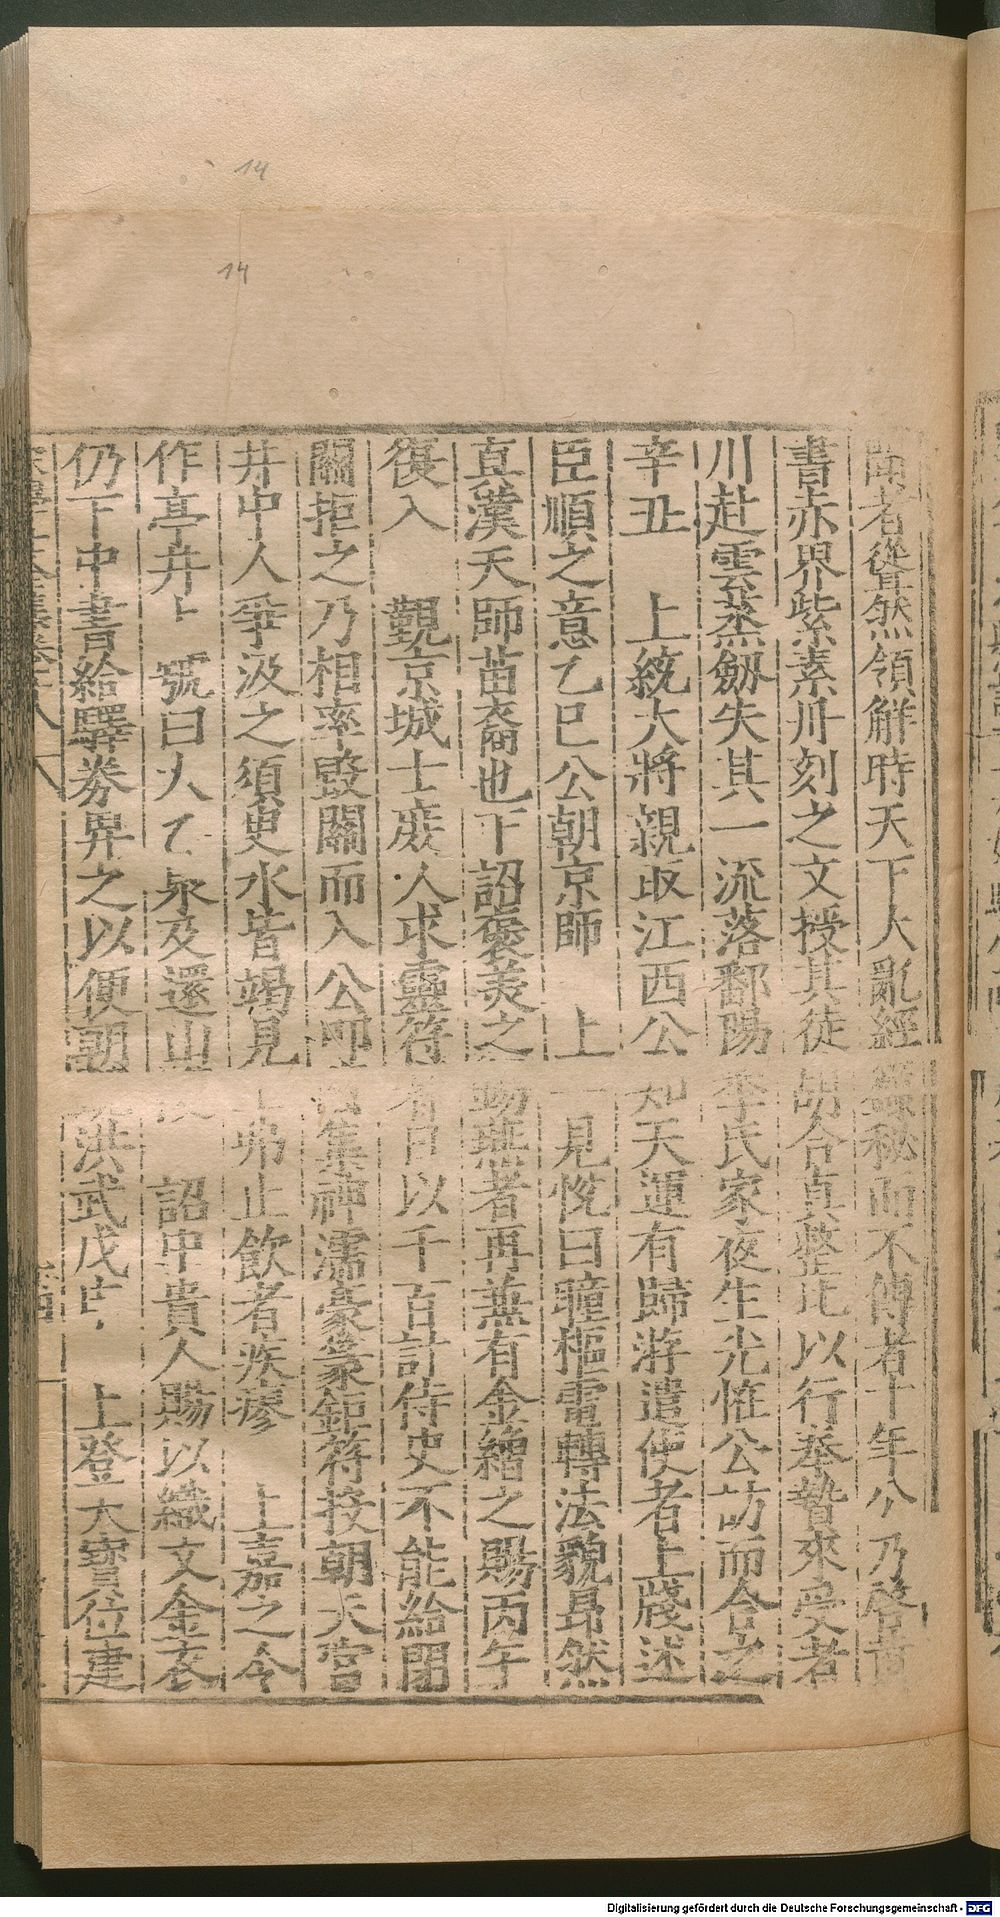 14
14
聞者聳然領解時天下大亂經籙秘而不傳者十年公乃啓黃
書赤界紫素丹刻之文授其徒胡合真整比以行奉贄來受者
川赴雲烝劔失其一流落鄱陽李氏家夜生光恠公訪而合之
辛丑 上統大將親取江西公知天運有歸游遣使者上牋述
臣順之意乙巳公朝京師 上一見悅曰瞳樞電轉法貌昂然
真漢天師苗裔也下詔褒美之 燕者再兼有金繒之賜丙午
復入 覲京城士庶人求靈符者日以千百計侍史不能給閉
關拒之乃相率毀關而入公叩 集神濡豪篆鉅符投朝天宮
井中人爭汲之須臾水皆竭見土弗止飲者疾瘳 上嘉之令
作亭井上號曰太乙泉及還山 詔中貴人賜以織文金衣
仍下中書給驛券畀之以便朝 洪武戊申 上登大寶位建